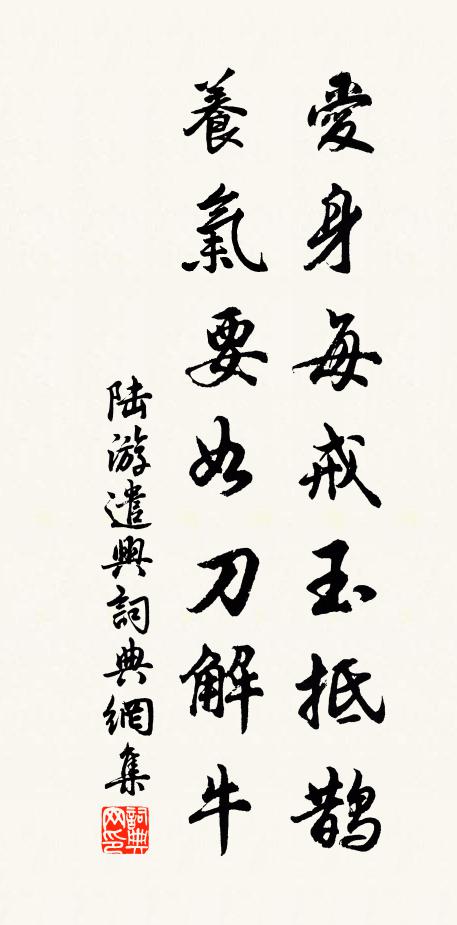 愛身每戒玉抵鵲
養氣要如刀解牛
陆游遣興詞典網集
詞典網印